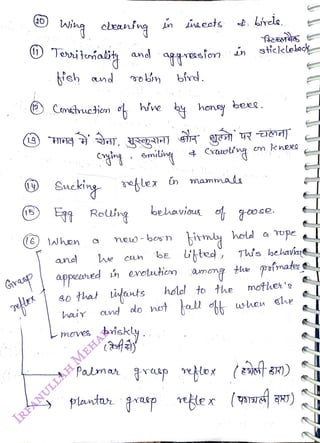 ⑩ Wing cleaning in insects & birds.
स्टिकलबैक
⑪ Territoriality and aggression in stickleback
fish and robin bird.
⑫ Construction of hive by honey bees.
⑬ मानव में रोना, मुस्कुराना और घुटनो पर चलना
Crying, smiling & crawling on knees
⑭ Sucking reflex in mammals
⑮ Egg Rolling behaviour of goose.
⑯ When a new-born firmly hold a rope
and he can be lifted, This behaviour
appeared in evolution among the primates
so that infants hold to the mother's
hair and do not fall off when she
moves briskly.
(तेजी से)
Grasp
reflex
Palmar grasp reflex (हथेली द्वारा)
plantar grasp reflex (पगथली द्वारा)
IRFANULLAH MEHAR